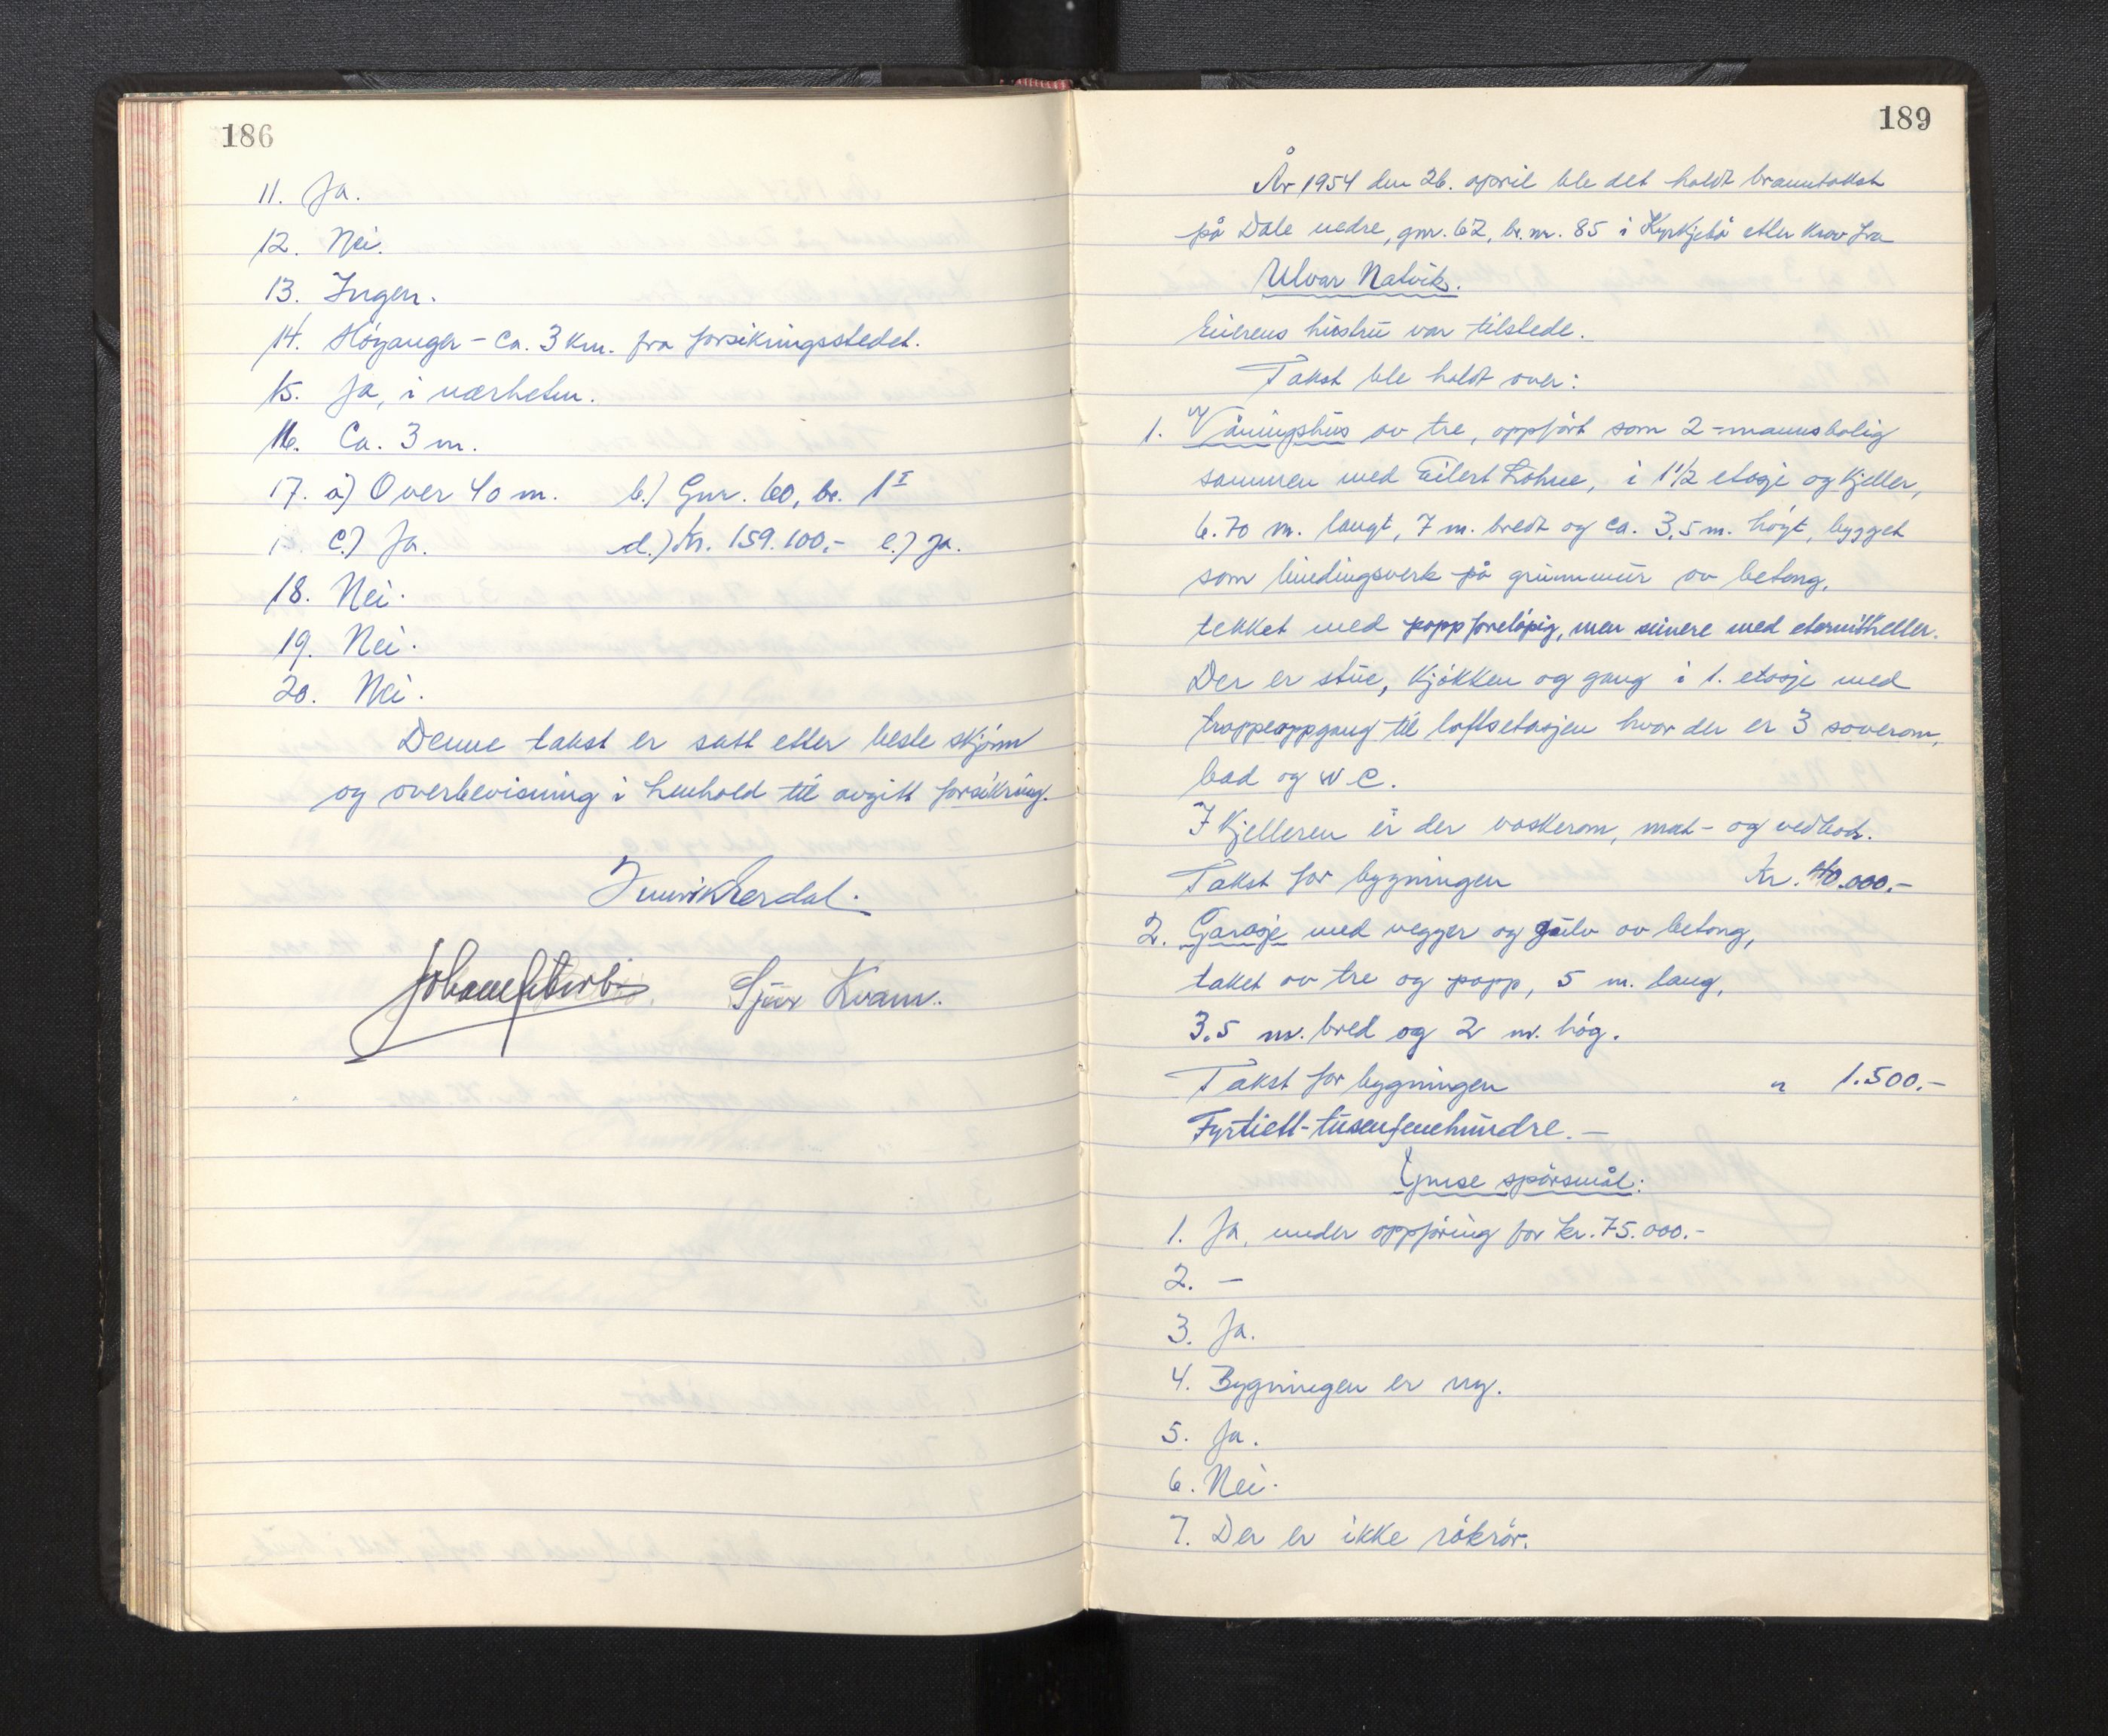 186
11. Ja.
12. Nei.
13. Ingen.
14. Höyanger - ca. 3 km. fra forsikringsstedet.
15. Ja, i nærheten.
16. Ca. 3 m.
17. a) Over 40 m. b.) Gnr. 60, br. 1 I
c.) Ja. d.) Kr. 159.100.- e.) Ja.
18. Nei.
19. Nei.
20. Nei.
Denne takst er satt etter beste skjönn
og overbevisning i henhold til avgitt forsikring.
Sjur Kvam.
189
År 1954 den 26. april ble det holdt branntakst
på Dale nedre, gnr. 62, br.nr. 85 i Kyrkjebö etter krav fra
Ulvar Natvik.
Eierens hustru var tilstede.
Takst ble holdt over:
1. Våningshus av tre, oppfört som 2-mannsbolig
sammen med Eilert Lohne, i 1 1/2 etasje og kjeller,
6.70 m. langt, 7 m. bredt og ca. 3,5 m. högt, bygget
som bindingsverk på grunnmur av betong,
tekket med papp forelöpig, men seinere med eternittheller.
Der er stue, kjökken og gang i 1. etasje med
trappeoppgang til loftsetasjen hvor der er 3 soverom,
bad og W C.
I kjelleren er der vaskerom, mat- og vedbod.
Takst for bygningen Kr. 40.000.-
2. Garasje med vegger og gulv av betong,
taket av tre og papp, 5 m. lang,
3.5 m. bred og 2 m. hög.
Takst for bygningen " 1.500.-
Fyrtiett-tusenfemhundre. -
Ymse spörsmål:
1. Ja, under oppföring for kr. 75.000.-
2. -
3. Ja.
4. Bygningen er ny.
5. Ja.
6. Nei.
7. Der er ikke rökrör.